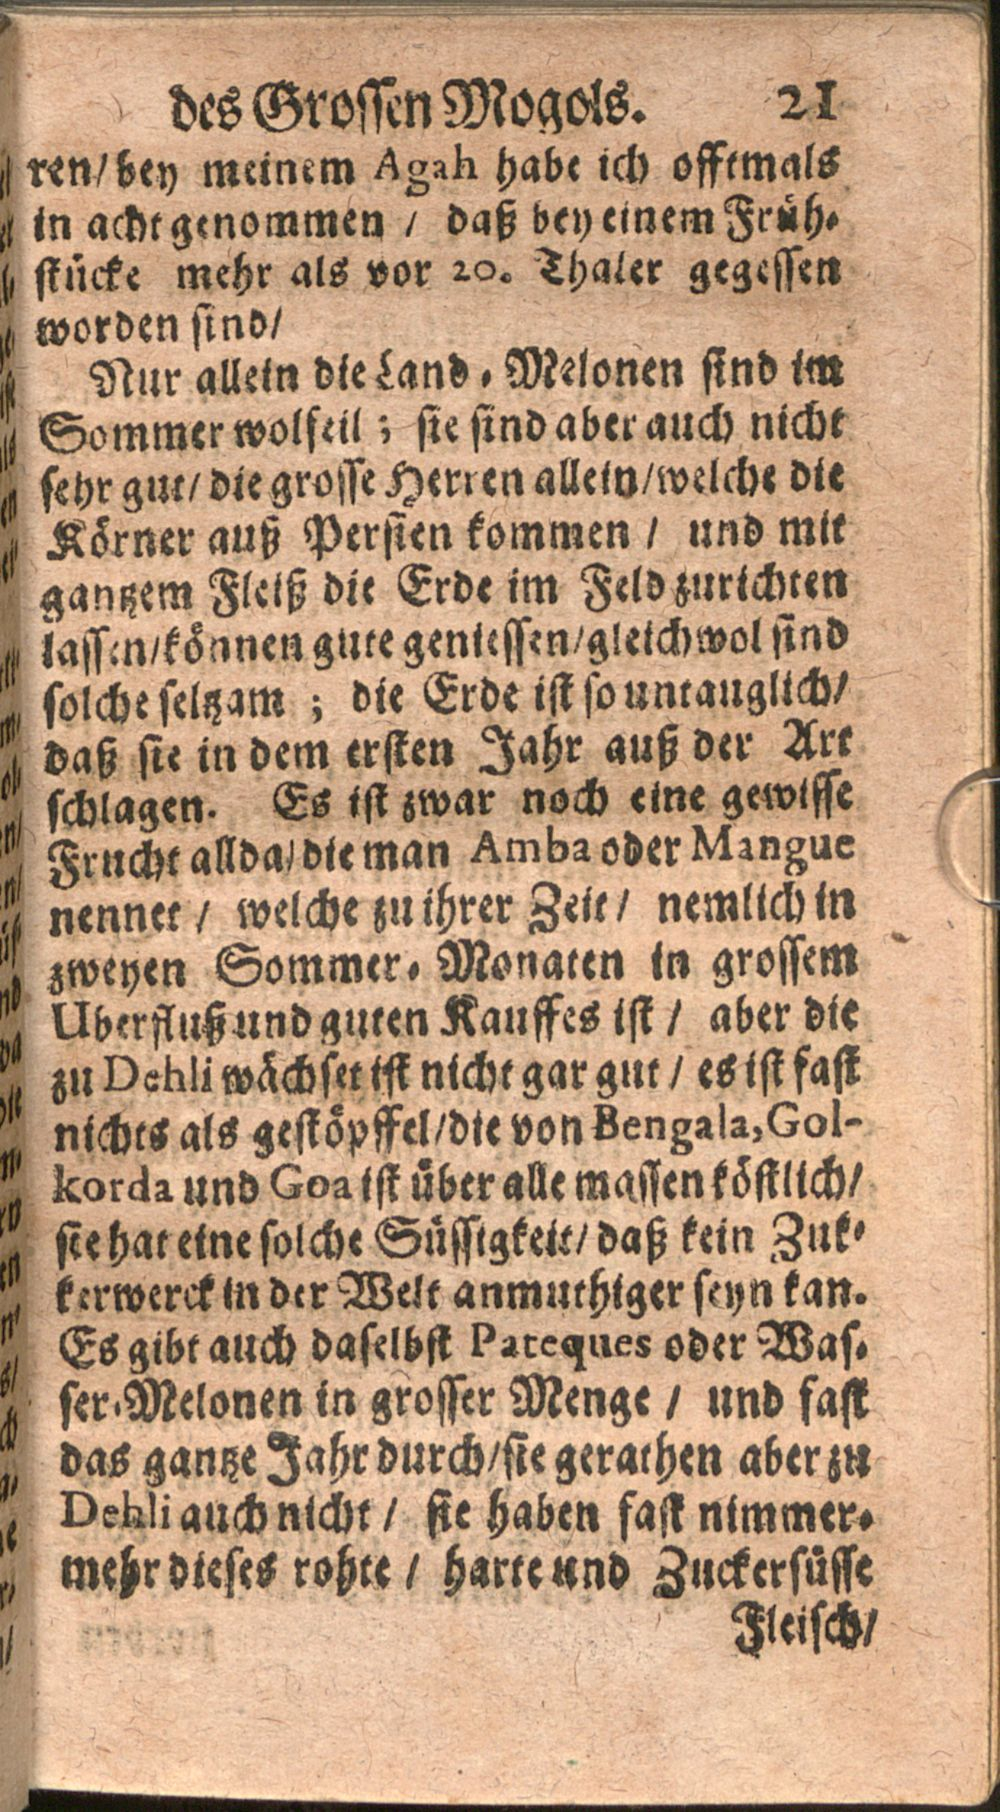 des Grossen Mogols. 21
ren/ bey meinem Agah habe ich offtmals
in acht genommen / daß bey einem Früh-
stücke mehr als vor 20. Thaler gegessen
worden sind/
Nur allein die Land-Melonen sind im
Sommer wolfeil; sie sind aber auch nicht
sehr gut/ die grosse Herren allein/welche die
Körner auß Persien kommen / und mit
gantzem Fleiß die Erde im Feld zurichten
lassen/können gute geniessen/gleichwol sind
solche seltzam ; die Erde ist so untauglich/
daß sie in dem ersten Jahr auß der Art
schlagen. Es ist zwar noch eine gewisse
Frucht allda/die man Amba oder Mangue
nennet / welche zu ihrer Zeit / nemlich in
zweyen Sommer-Monaten in grossem
Uberfluß und guten Kauffes ist / aber die
zu Dehli wächset ist nicht gar gut / es ist fast
nichts als gestöpffel/die von Bengala, Gol-
korda und Goa ist über alle massen köstlich/
sie hat eine solche Süssigkeit/ daß kein Zuk-
kerwerck in der Welt anmuthiger seyn kan.
Es gibt auch daselbst Pateques oder Was-
ser-Melonen in grosser Menge / und fast
das gantze Jahr durch/sie gerathen aber zu
Dehli auch nicht / sie haben fast nimmer-
mehr dieses rohte / harte und Zuckersüsse
Fleisch/